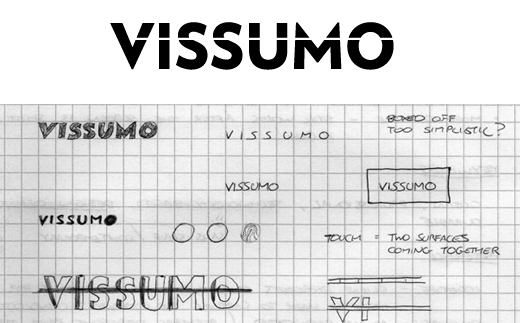 VISSUMO
VISSUMO
VISSUMO
BOXED OFF
TOO SIMPLISTIC?
VISSUMO
VISSUMO
VISSUMO
TOUCH = TWO SURFACES
COMING TOGETHER
VISSUMO
VI